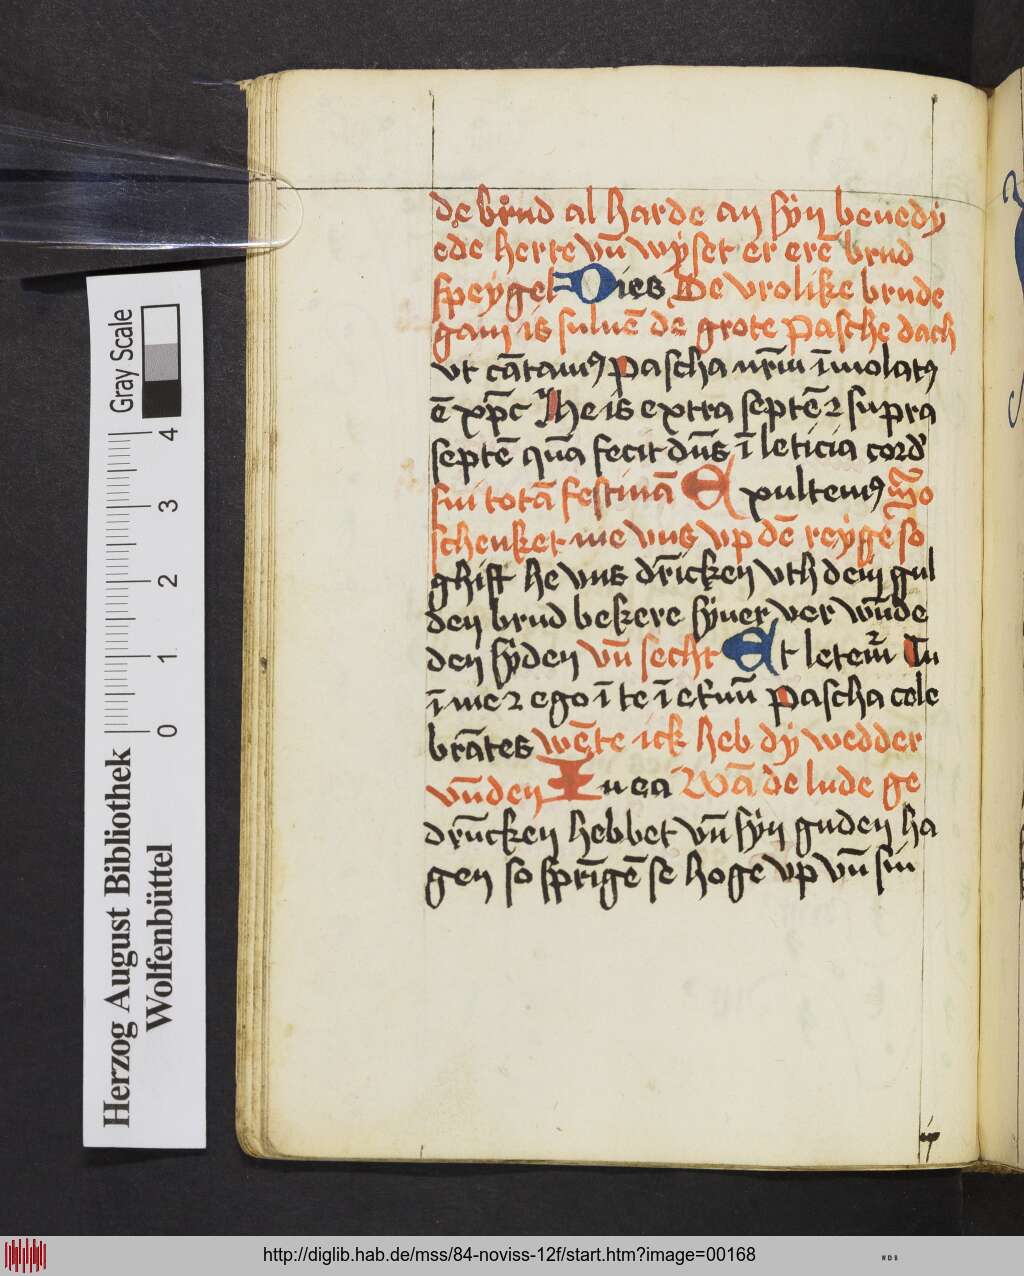 de brud al harde an syn benedy
ede herte vn̄ wyset er erē brud
speygel Dies De vrolike brude
gam is suluē de grote pasche dach
vt cātamꝰ pascha nr̄m īmolatꝰ
ē xp̄c The is extra septē ⁊ supra
septē qua fecit dn̄s ī leticia cord
sui totā festinā Expultemꝰ No
schenket me vns vp dē reyge so
ghift he vns dricken vth dem gul
den brud bekere syner ver wūde
den syden vn̄ secht Et letem̄ In
ī me ⁊ ego ī te ī et'nū pascha cele
brātes wēte ick heb dy wedder
vūden In ea Wā de lude ge
drūcken hebbet vn̄ syn guden ha
gen so sprīgē se hoge vp vn̄ sin
Herzog August Bibliothek
Wolfenbüttel
0 1 2 3 4
Gray Scale
http://diglib.hab.de/mss/84-noviss-12f/start.htm?image=00168